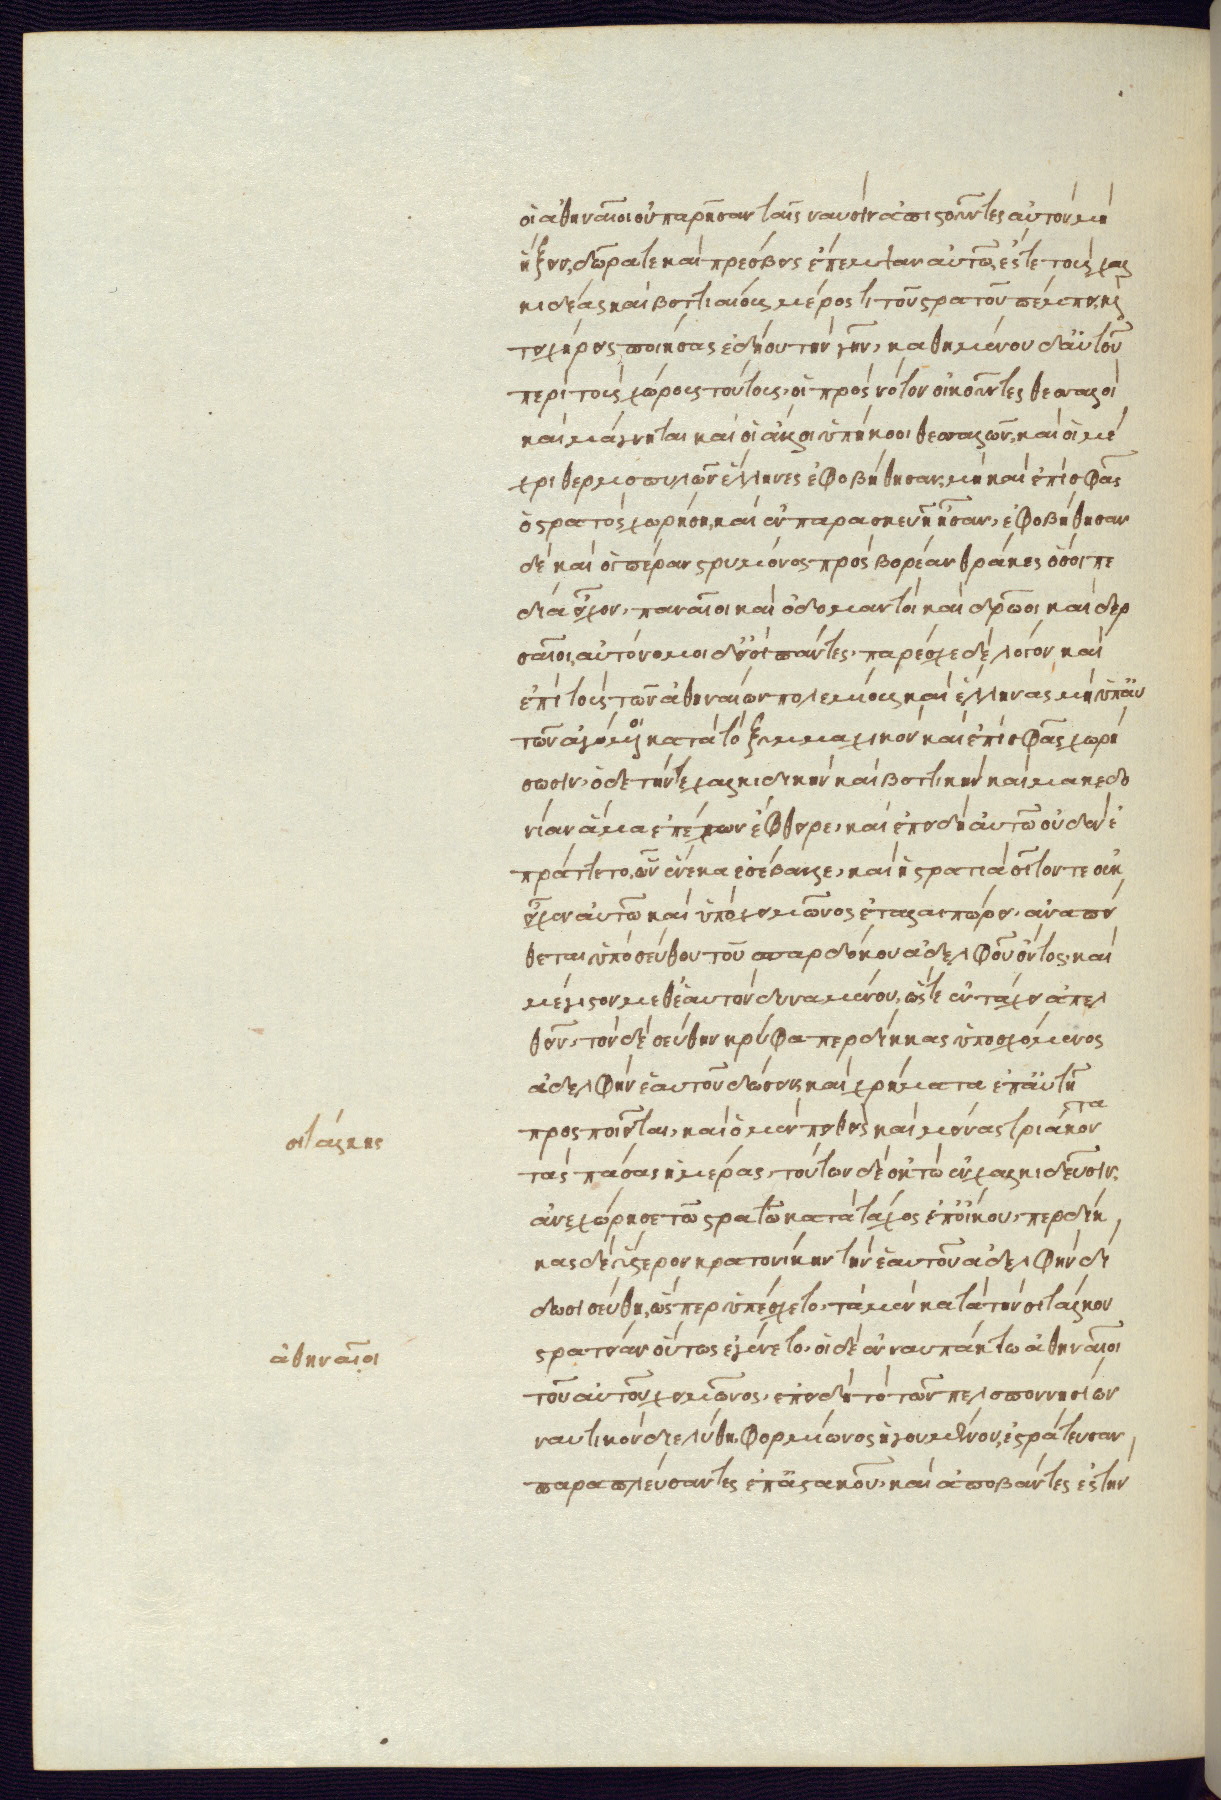 οἱ ἀθηναῖοι οὐ παρῆσαν ταῖς ναυσὶν ἀπιστοῦντες αὐτὸν μὴ
ἥξειν, δῶρά τε καὶ πρέσβεις ἔπεμψαν αὐτῶ, ἔς τε τοὺς χαλ
κιδέας καὶ βοττιαίους μέρος τι τοῦ στρατοῦ πέμπει, καὶ
τειχήρεις ποιήσας ἐδῄου τὴν γῆν, καθημένου δ' αὐτοῦ
περὶ τοὺς χώρους τούτους, οἱ πρὸς νότον οἰκοῦντες θεσσαλοὶ
καὶ μάγνηται καὶ οἱ ἄλλοι ὑπήκοοι θεσσαλῶν, καὶ οἱ μέ
χρι θερμοπυλῶν ἕλληνες ἐφοβήθησαν, μὴ καὶ ἐπὶ σφᾶς
ὁ στρατὸς χωρήσῃ, καὶ ἐν παρασκευῇ ἦσαν, ἐφοβήθησαν
δὲ καὶ οἱ πέραν στρυμόνος πρὸς βορέαν θρᾶκες ὅσοι πε
δία εἶχον, παναῖοι καὶ ὀδόμαντοι καὶ δρῶοι καὶ δερ
σαῖοι, αὐτόνομοι δ' εἰσὶ πάντες, παρέσχε δὲ λόγον καὶ
ἐπὶ τοὺς τῶν ἀθηναίων πολεμίους καὶ ἕλληνας μὴ ὑπ' αὐ
τῶν ἀγόμενοι κατὰ τὸ ξυμμαχικὸν καὶ ἐπὶ σφᾶς χωρή
σωσιν, ὁ δὲ τήν τε χαλκιδικὴν καὶ βοττικὴν καὶ μακεδο
νίαν ἅμα ἐπέχων ἔφθειρε, καὶ ἐπειδὴ αὐτῶ οὐδὲν ἐ
πράττετο, ὧν ἕνεκα ἐσέβαλλε, καὶ ἡ στρατιὰ σῖτόν τε οὐκ
εἶχεν αὐτῶ καὶ ὑπὸ χειμῶνος ἐταλαιπώρει, ἀναπεί
θεται ὑπὸ σεύθου τοῦ σπαρδόκου ἀδελφοῦ ὄντος, καὶ
μέγιστον μεθ' ἑαυτὸν δυναμένου, ὥστε ἐν τάχει ἀπελ
θεῖν, τὸν δὲ σεύθην κρύφα περδίκκας ὑποσχόμενος
ἀδελφὴν ἑαυτοῦ δώσειν, καὶ χρήματα ἐπ' αὐτῇ
προσποιεῖται, καὶ ὁ μὲν πεισθεὶς καὶ μείνας τριάκον
τας πάσας ἡμέρας, τούτων δὲ ὀκτὼ ἐν χαλκιδεῦσιν,
ἀνεχώρησε τῶ στρατῶ κατὰ τάχος ἐπ' οἴκου, περδίκ
κας δὲ ὕστερον κρατονίκην τὴν ἑαυτοῦ ἀδελφὴν δί
δωσι σεύθῃ, ὥσπερ ὑπέσχετο, τὰ μὲν κατὰ τὴν σιτάλκου
στρατείαν οὕτως ἐγένετο, οἱ δὲ ἐν ναυπάκτω ἀθηναῖοι
τοῦ αὐτοῦ χειμῶνος, ἐπειδὴ τὸ τῶν πελοποννησίων
ναυτικὸν διελύθη, φορμίωνος ἡγουμένου, ἐστράτευσαν,
παραπλεύσαντες ἐπ' ἀστακοῦ, καὶ ἀποβάντες ἐς τὴν
σιτάλκης
ἀθηναῖοι